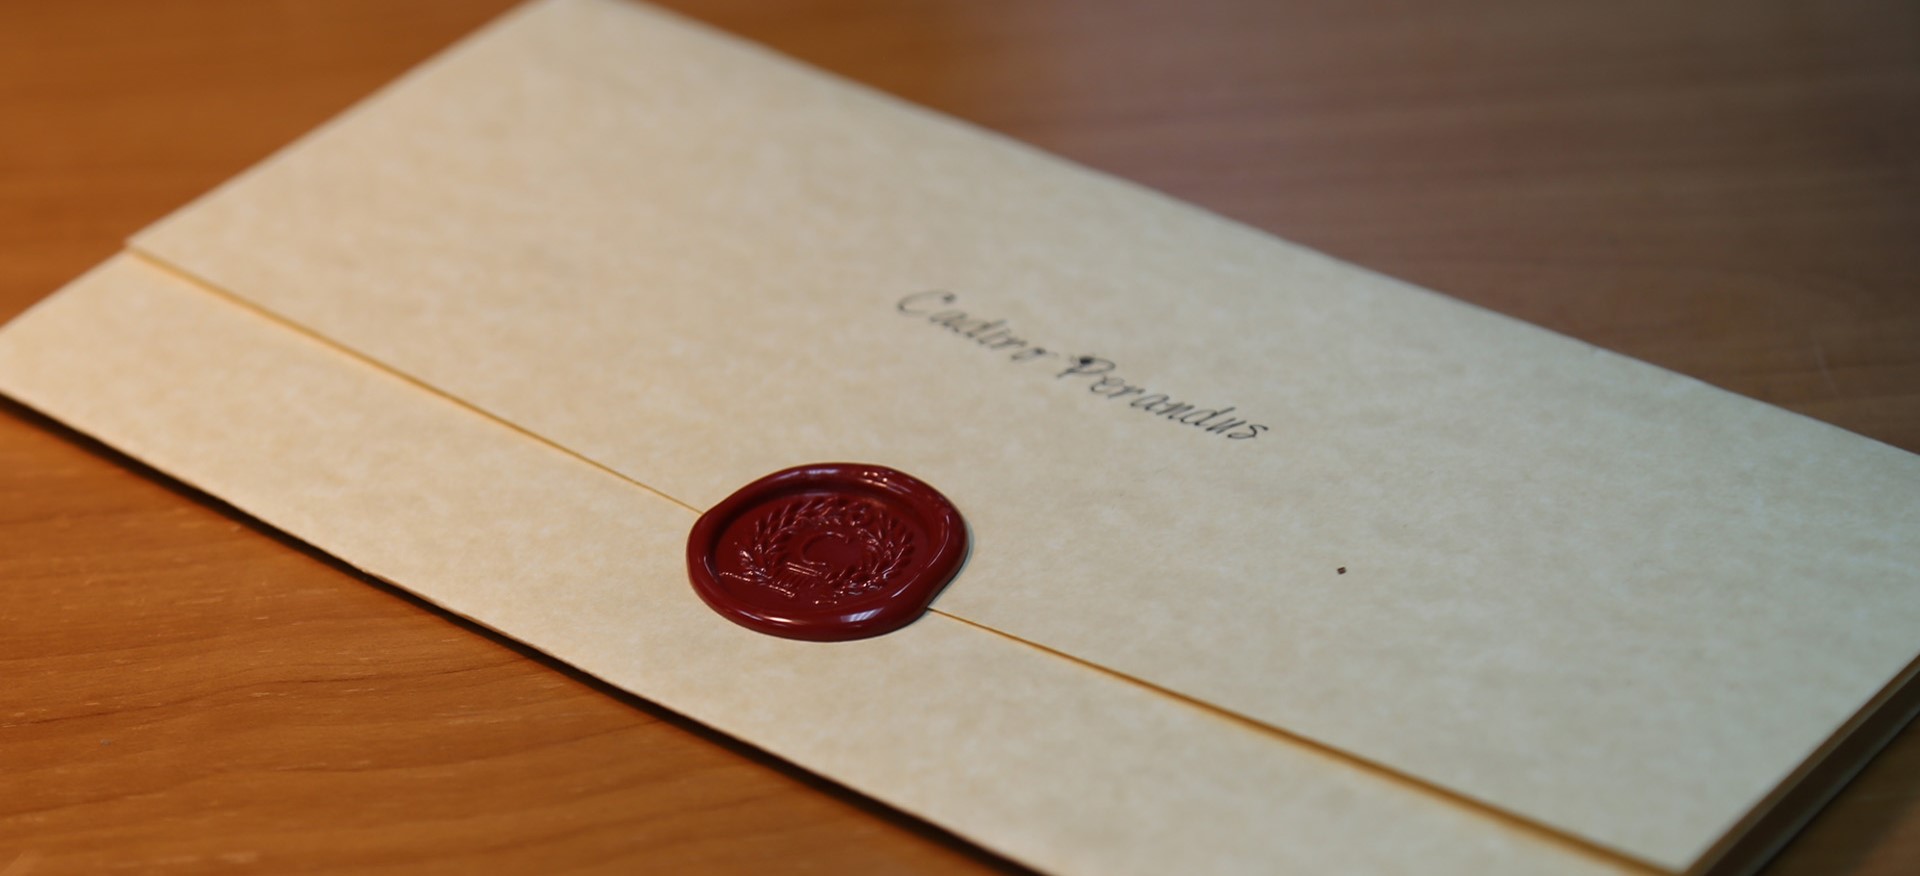 Cadiro Perandus
C